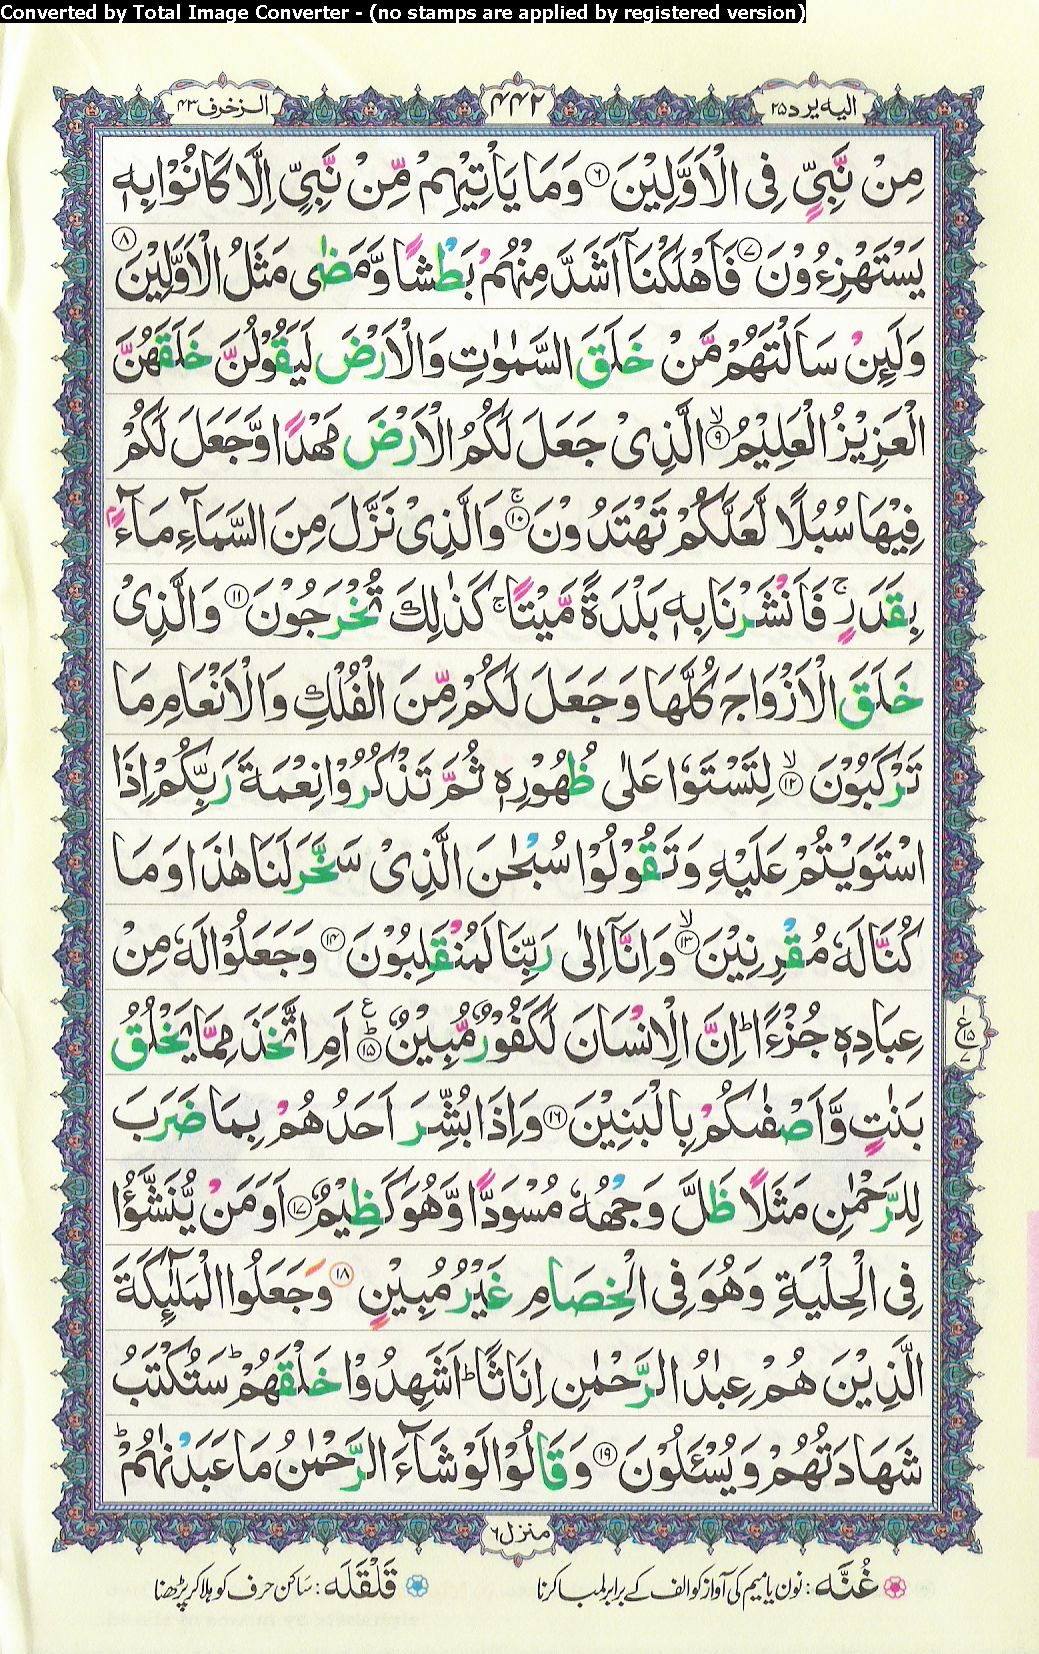 Converted by Total Image Converter - (no stamps are applied by registered version)
الیه یرد ۲۵ ۴۴۲ الزخرف ۴۳
مِنْ نَّبِیٍّ فِی الْاَوَّلِیْنَ ﴿۶﴾ وَمَا یَاْتِیْهِمْ مِّنْ نَّبِیٍّ اِلَّا كَانُوْا بِهٖ
یَسْتَهْزِءُوْنَ ﴿۷﴾ فَاَهْلَكْنَاۤ اَشَدَّ مِنْهُمْ بَطْشًا وَّمَضٰی مَثَلُ الْاَوَّلِیْنَ ﴿۸﴾
وَلَىِٕنْ سَاَلْتَهُمْ مَّنْ خَلَقَ السَّمٰوٰتِ وَالْاَرْضَ لَیَقُوْلُنَّ خَلَقَهُنَّ
الْعَزِیْزُ الْعَلِیْمُ ﴿۹﴾ۙ الَّذِیْ جَعَلَ لَكُمُ الْاَرْضَ مَهْدًا وَّجَعَلَ لَكُمْ
فِیْهَا سُبُلًا لَّعَلَّكُمْ تَهْتَدُوْنَ ﴿۱۰﴾ۚ وَالَّذِیْ نَزَّلَ مِنَ السَّمَآءِ مَآءًۢ
بِقَدَرٍ ۚ فَاَنْشَرْنَا بِهٖ بَلْدَةً مَّیْتًا ۚ كَذٰلِكَ تُخْرَجُوْنَ ﴿۱۱﴾ وَالَّذِیْ
خَلَقَ الْاَزْوَاجَ كُلَّهَا وَجَعَلَ لَكُمْ مِّنَ الْفُلْكِ وَالْاَنْعَامِ مَا
تَرْكَبُوْنَ ﴿۱۲﴾ۙ لِتَسْتَوٗا عَلٰی ظُهُوْرِهٖ ثُمَّ تَذْكُرُوْا نِعْمَةَ رَبِّكُمْ اِذَا
اسْتَوَیْتُمْ عَلَیْهِ وَتَقُوْلُوْا سُبْحٰنَ الَّذِیْ سَخَّرَ لَنَا هٰذَا وَمَا
كُنَّا لَهٗ مُقْرِنِیْنَ ﴿۱۳﴾ۙ وَاِنَّاۤ اِلٰی رَبِّنَا لَمُنْقَلِبُوْنَ ﴿۱۴﴾ وَجَعَلُوْا لَهٗ مِنْ
عِبَادِهٖ جُزْءًا ؕ اِنَّ الْاِنْسَانَ لَكَفُوْرٌ مُّبِیْنٌ ﴿۱۵﴾ؕ ع اَمِ اتَّخَذَ مِمَّا یَخْلُقُ
ع ۱۵ ۷
بَنٰتٍ وَّاَصْفٰىكُمْ بِالْبَنِیْنَ ﴿۱۶﴾ وَاِذَا بُشِّرَ اَحَدُهُمْ بِمَا ضَرَبَ
لِلرَّحْمٰنِ مَثَلًا ظَلَّ وَجْهُهٗ مُسْوَدًّا وَّهُوَ كَظِیْمٌ ﴿۱۷﴾ اَوَمَنْ یُّنَشَّؤُا
فِی الْحِلْیَةِ وَهُوَ فِی الْخِصَامِ غَیْرُ مُبِیْنٍ ﴿۱۸﴾ وَجَعَلُوا الْمَلٰٓىِٕكَةَ
الَّذِیْنَ هُمْ عِبٰدُ الرَّحْمٰنِ اِنَاثًا ؕ اَشَهِدُوْا خَلْقَهُمْ ؕ سَتُكْتَبُ
شَهَادَتُهُمْ وَیُسْـَٔلُوْنَ ﴿۱۹﴾ وَقَالُوْا لَوْ شَآءَ الرَّحْمٰنُ مَا عَبَدْنٰهُمْ ؕ
منزل ۶
غُنَّه : نون یا میم کی آواز کو الف کے برابر لمبا کرنا قَلْقَلَه : ساکن حرف کو ہلا کر پڑھنا